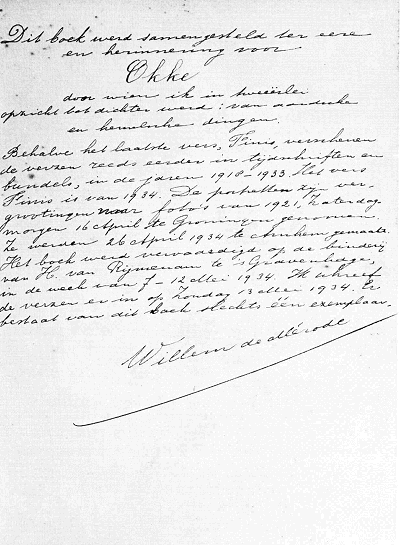 Dit boek werd samengesteld ter eere
en herinnering voor
Okke
door wien ik in tweeërlei
opzicht tot dichter werd: van aardsche
en hemelsche dingen.
Behalve het laatste vers, Finis, verschenen
de verzen reeds eerder in tijdschriften en
bundels, in de jaren 1910-1933. Het vers
Finis is van 1934. De portretten zijn ver-
grootingen naar foto's van 1921, Zaterdag-
morgen 16 April te Groningen genomen.
Ze werden 26 April 1934 te Arnhem gemaakt.
Het boek werd vervaardigd op de binderij
van H. van Rijmenam te 's Gravenhage,
in de week van 7-12 Mei 1934. Ik schreef
de verzen er in op Zondag 13 Mei 1934. Er
bestaat van dit boek slechts één exemplaar.
Willem de Mérode